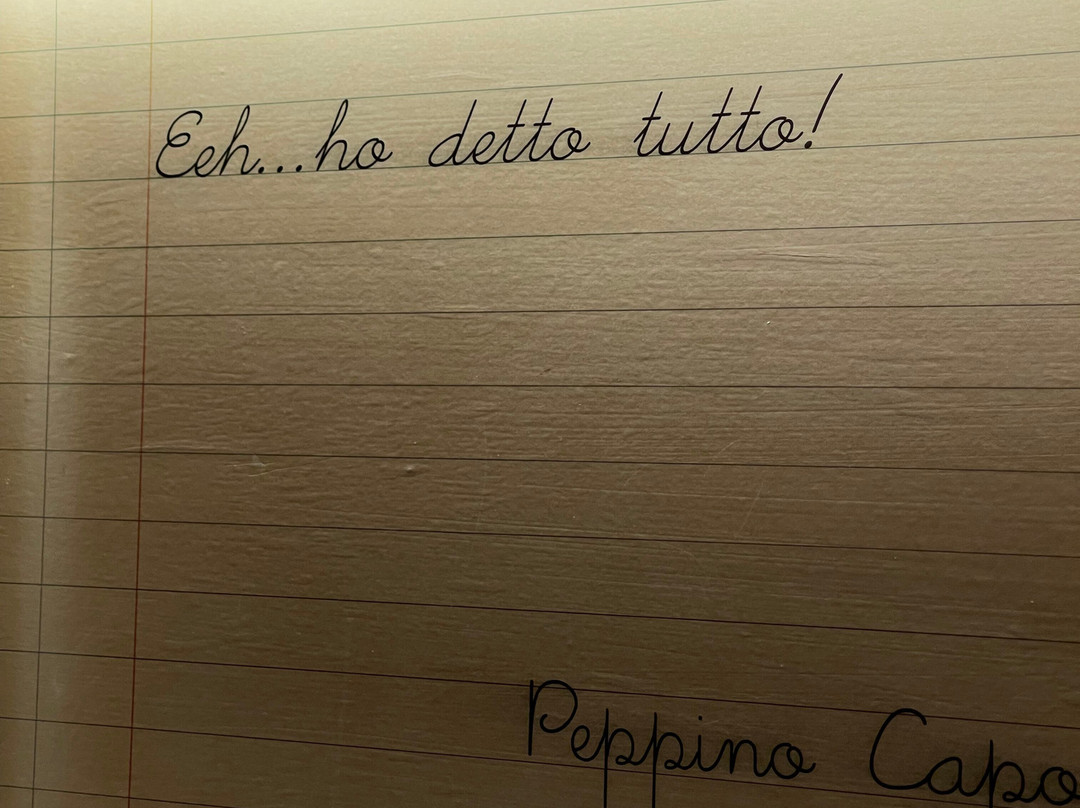 Eeh...ho detto tutto!
Peppino Capo